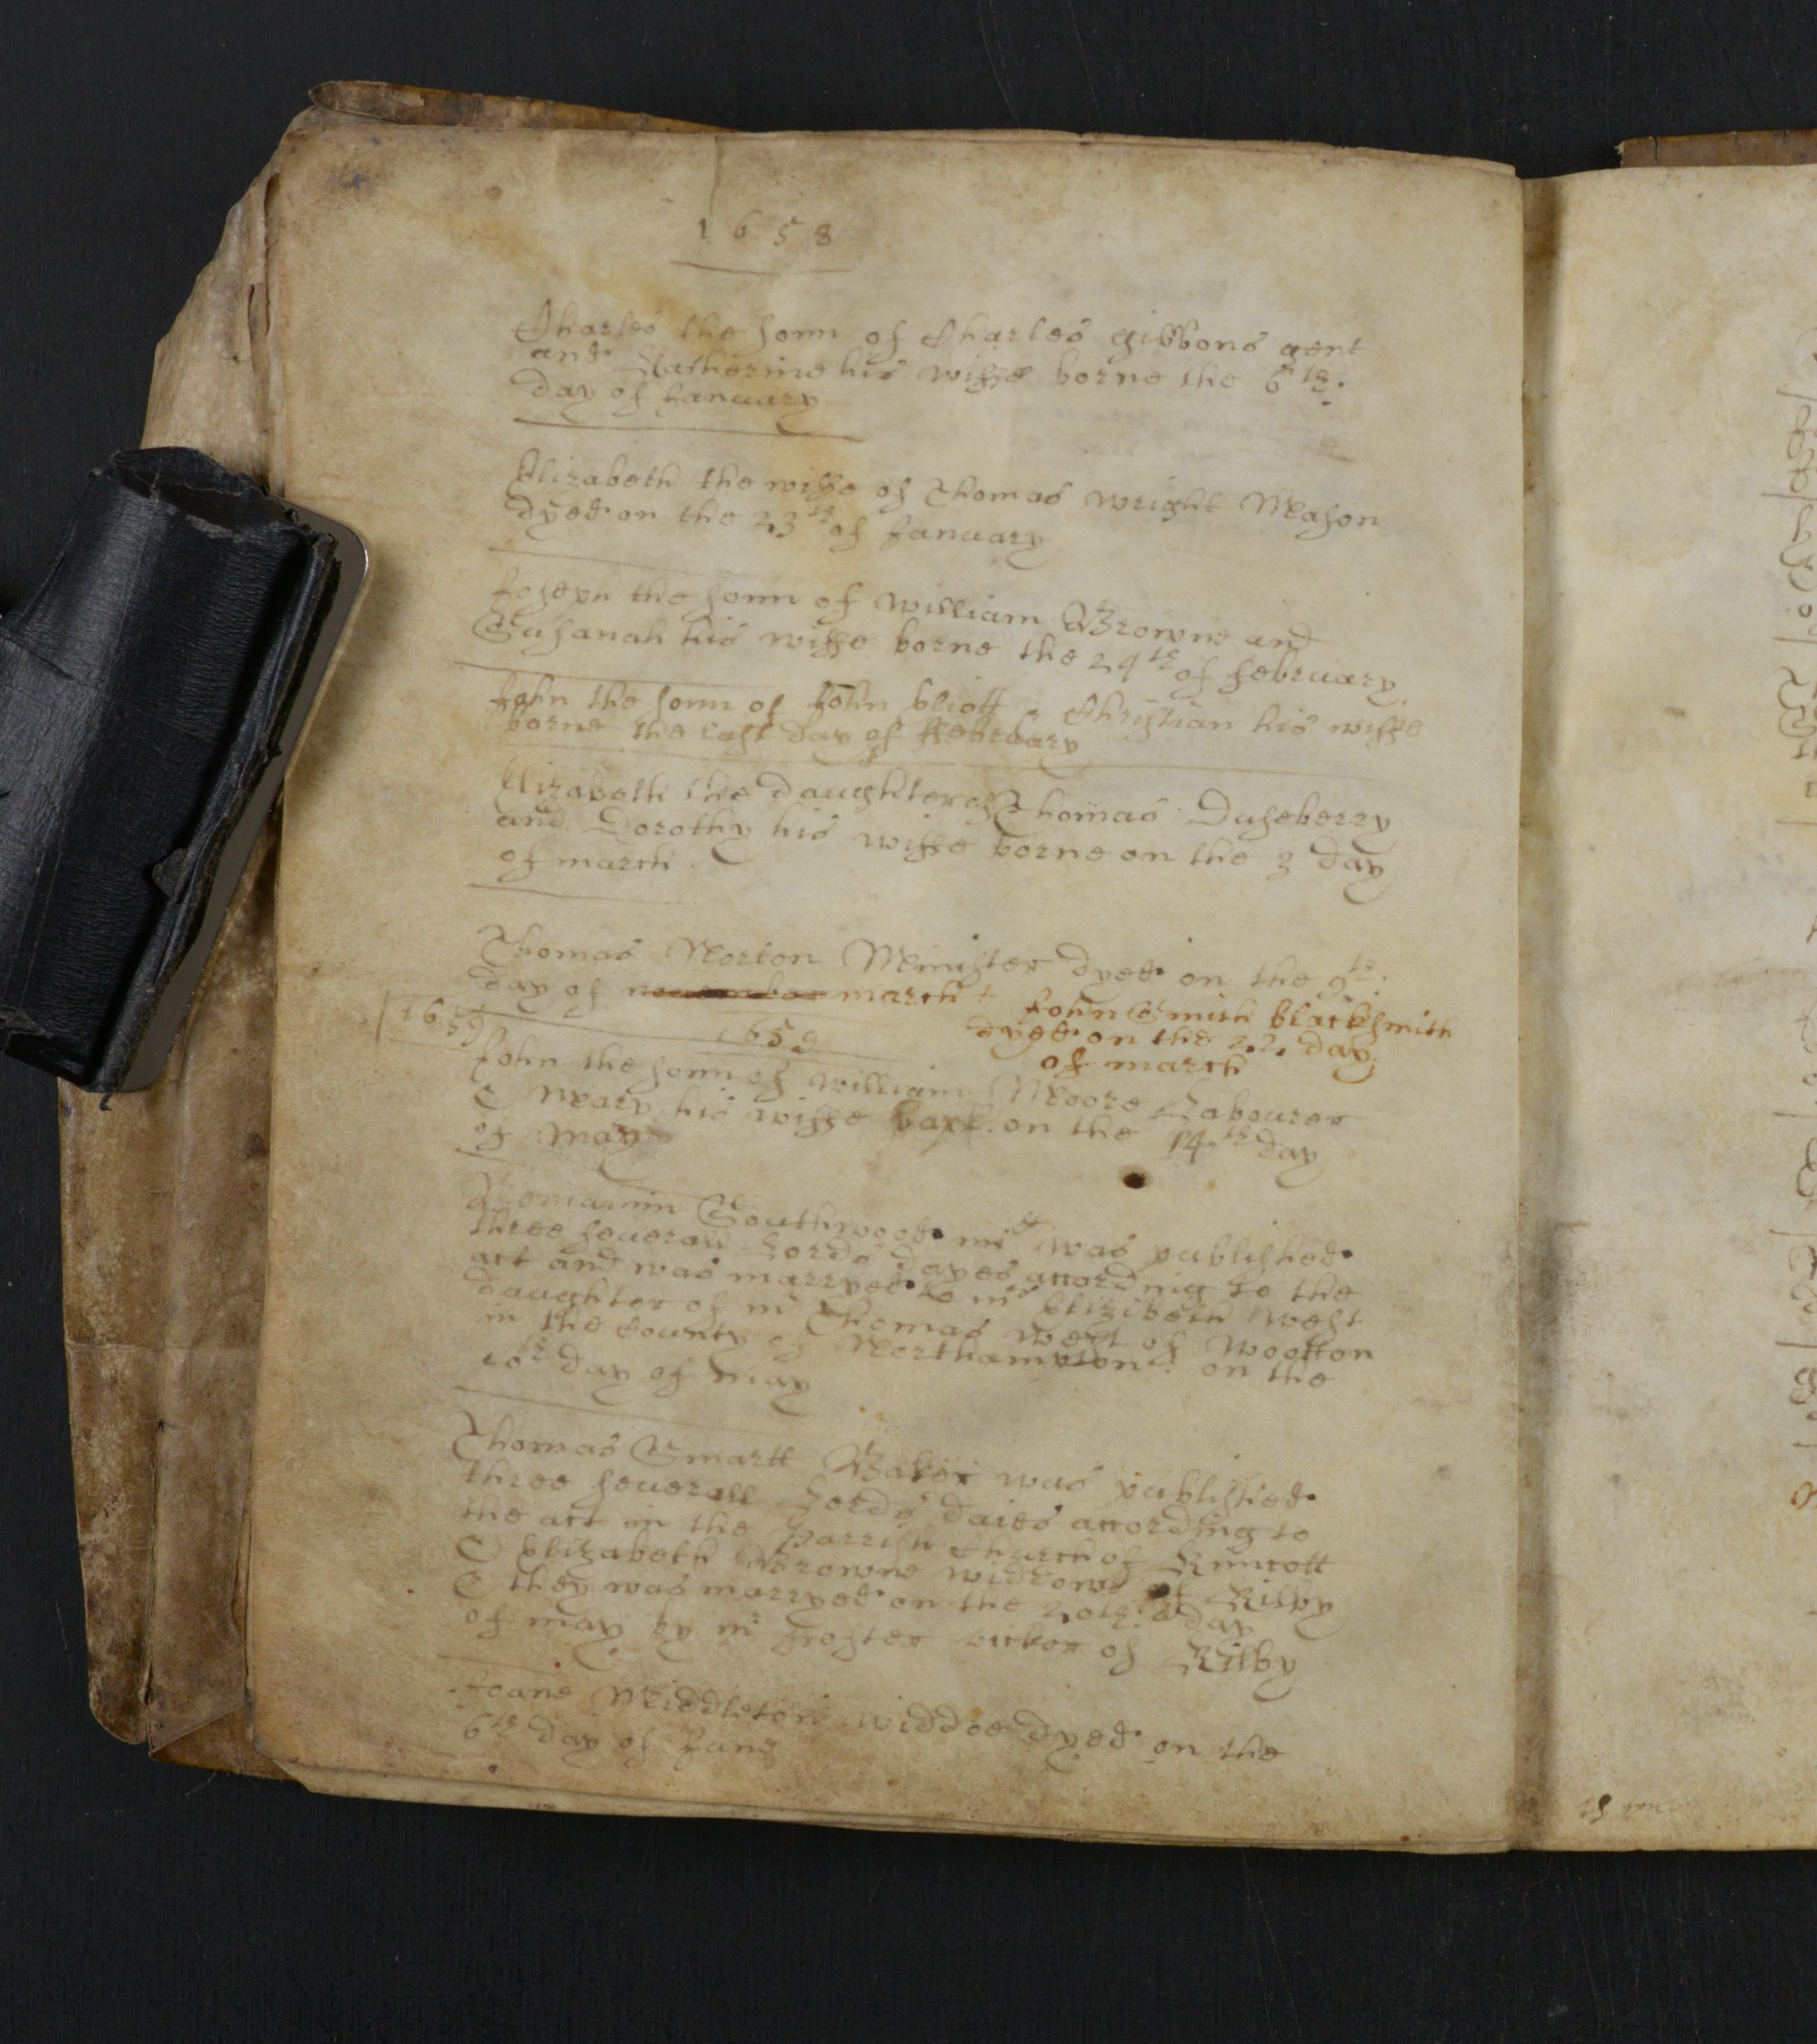 1658
Charles the sonn of Charles gibbons gent
and Katherine his wiffe borne the 6th
day of January
Elizabeth the wiffe of Thomas wright Mason
dyed on the 23th of January
Joseph the sonn of william Browne and
Susanah his wiffe borne the 24th of february
John the sonn of John Eliott & Christian his wiffe
borne the last day of ffebruary
Elizabeth the daughter of Thomas Duseberry
and Dorothy his wiffe borne on the 3 day
of march
Thomas Norton Minister dyed on the 9th
day of november march
John Smith blacksmith
dyed on the 22 day
of march
1659
1659
John the sonn of william Moore Labourer
& Mary his wiffe bapt. on the 14th day
of May
Beniamin Southwood was published
three severall Lords dayes according to the
act and was marryed to mrs Elizibeth West
daughter of mr Thomas West of Wootton
in the County of Northampton: on the
10th day of may
Thomas Smartt Baker was published
three severall Lords daies according to
the act in the Parrish Church of
& Elizabeth Browne widdowe of Kilby
& they was marryed on the 20th day
of may by mr froster vicker of Kilby
Joane Middleton widdoe dyed on the
6th day of June